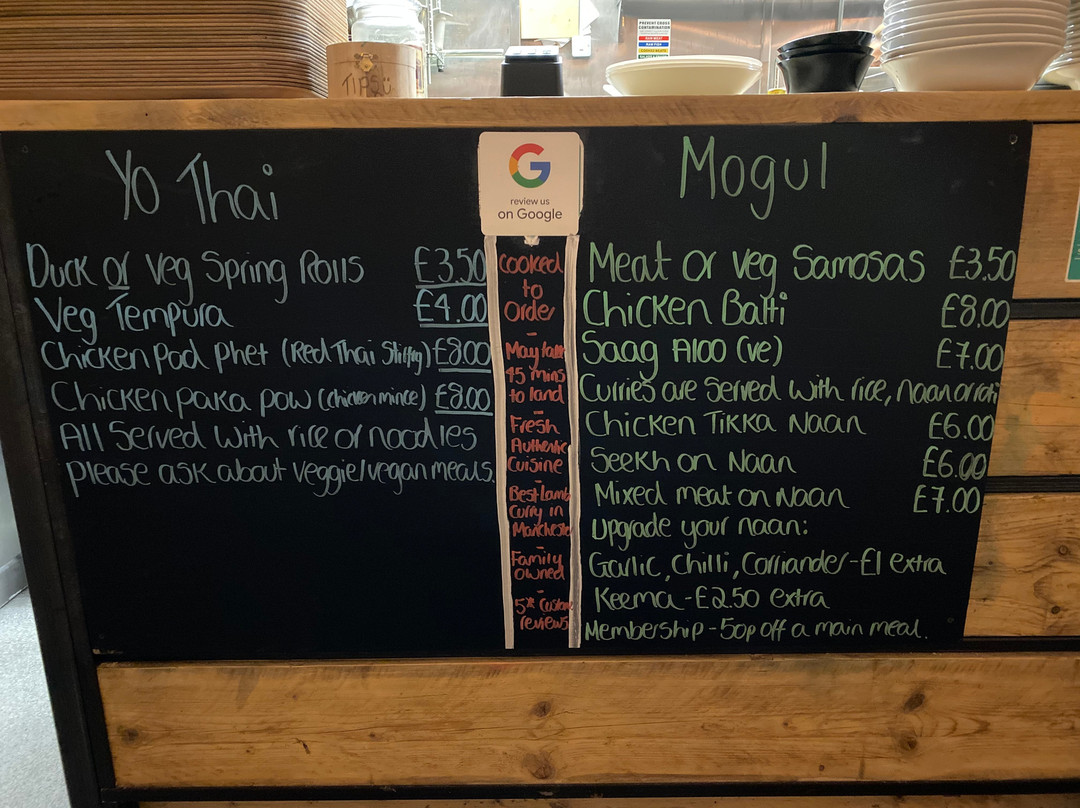 TIPS
Yo Thai
Duck or Veg Spring Rolls £3.50
Veg Tempura £4.00
Chicken Pad Phet (Red Thai Stirfry) £8.00
Chicken paka pow (chicken mince) £8.00
All Served with rice or noodles
please ask about veggie/vegan meals.
review us
on Google
Cooked
to
Order
-
May take
15 mins
to land
-
Fresh
Authentic
Cuisine
-
Best Lamb
Curry in
Manchester
-
Family
owned
-
5* Custom
reviews
Mogul
Meat or veg Samosas £3.50
Chicken Balti £8.00
Saag Aloo (ve) £7.00
Curries are Served with rice, naan or roti
Chicken Tikka Naan £6.00
Seekh on Naan £6.00
Mixed meat on Naan £7.00
Upgrade your naan:
Garlic, Chilli, Corriander - £1 extra
Keema - £2.50 extra
Membership - 50p off a main meal.